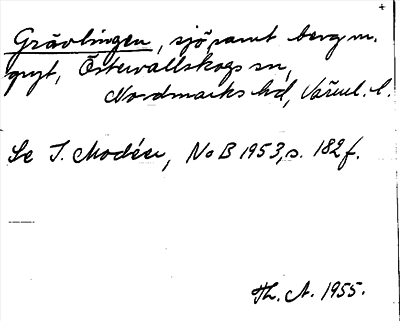 Grävlingen, sjö, samt berg m.
gryt, Östervallskogs sn,
Nordmarks hd, Värml. l.
Se I. Modéer, NoB 1953, s. 182 f.
Th. A. 1955.